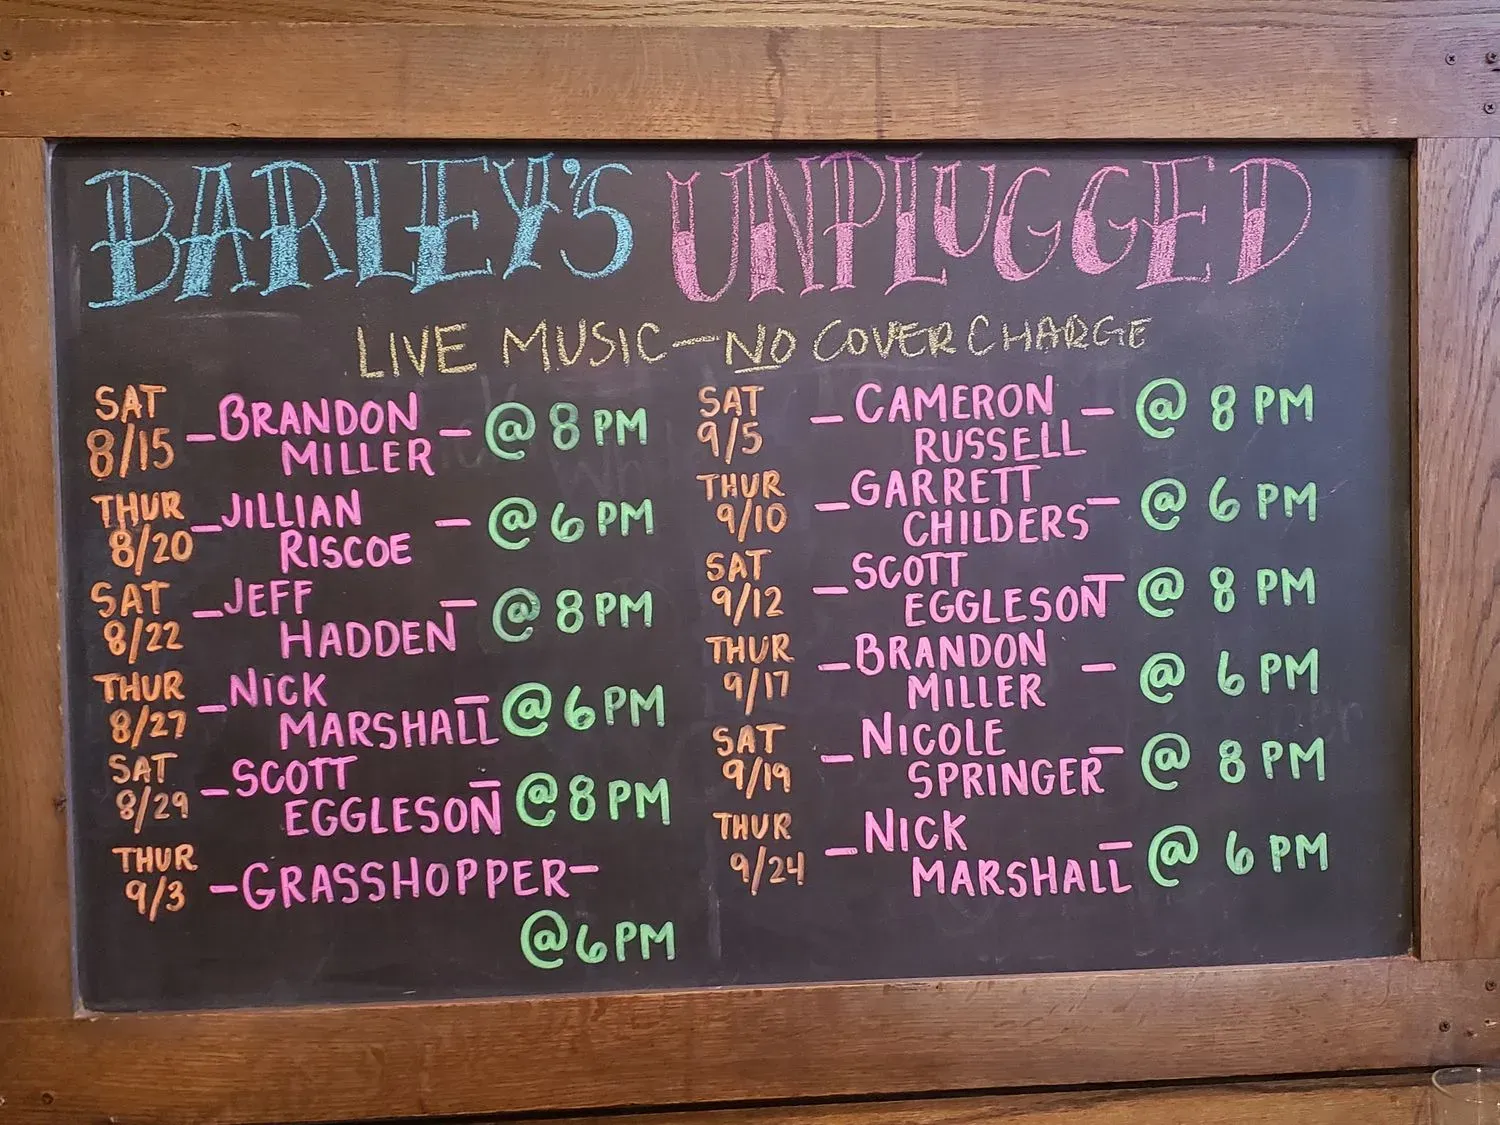 BARLEY'S UNPLUGGED
LIVE MUSIC—NO COVER CHARGE
SAT
8/15 – BRANDON
MILLER – @ 8 PM
THUR
8/20 – JILLIAN
RISCOE – @ 6 PM
SAT
8/22 – JEFF
HADDEN – @ 8 PM
THUR
8/27 – NICK
MARSHALL – @ 6 PM
SAT
8/29 – SCOTT
EGGLESON – @ 8 PM
THUR
9/3 – GRASSHOPPER –
@ 6 PM
SAT
9/5 – CAMERON
RUSSELL – @ 8 PM
THUR
9/10 – GARRETT
CHILDERS – @ 6 PM
SAT
9/12 – SCOTT
EGGLESON – @ 8 PM
THUR
9/17 – BRANDON
MILLER – @ 6 PM
SAT
9/19 – NICOLE
SPRINGER – @ 8 PM
THUR
9/24 – NICK
MARSHALL – @ 6 PM